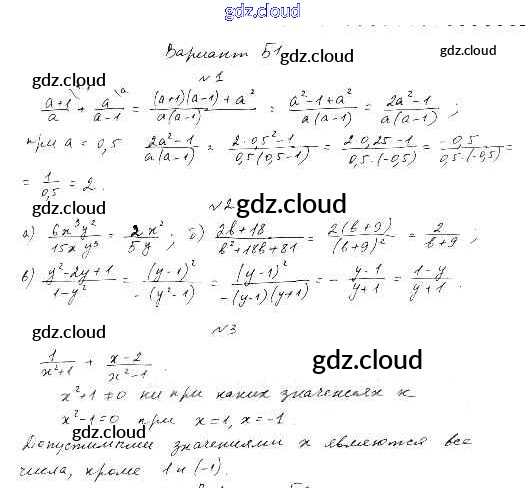 gdz.cloud
Вариант Б1
gdz.cloud
№1
gdz.cloud
(a+1)/a + a/(a-1) = ((a+1)(a-1)+a²)/(a(a-1)) = (a²-1+a²)/(a(a-1)) = (2a²-1)/(a(a-1)) ;
при a = 0,5 (2a²-1)/(a(a-1)) = (2·0,5²-1)/(0,5(0,5-1)) = (2·0,25-1)/(0,5·(-0,5)) = (-0,5)/(0,5·(-0,5)) =
gdz.cloud gdz.cloud
= 1/0,5 = 2.
№2 gdz.cloud
а) 6x³y²/15xy³ = 2x²/5y ; б) (2b+18)/(b²+18b+81) = 2(b+9)/(b+9)² = 2/(b+9) ;
в) (y²-2y+1)/(1-y²) = (y-1)²/(-(y²-1)) = (y-1)²/(-(y-1)(y+1)) = -(y-1)/(y+1) = (1-y)/(y+1) .
gdz.cloud
gdz.cloud
№3
gdz.cloud
1/(x²+1) + (x-2)/(x²-1)
gdz.cloud
x²+1≠0 ни при каких значениях x
x²-1=0 при x=1, x=-1.
gdz.cloud
Допустимыми значениями x являются все
gdz.cloud
числа, кроме 1 и (-1).